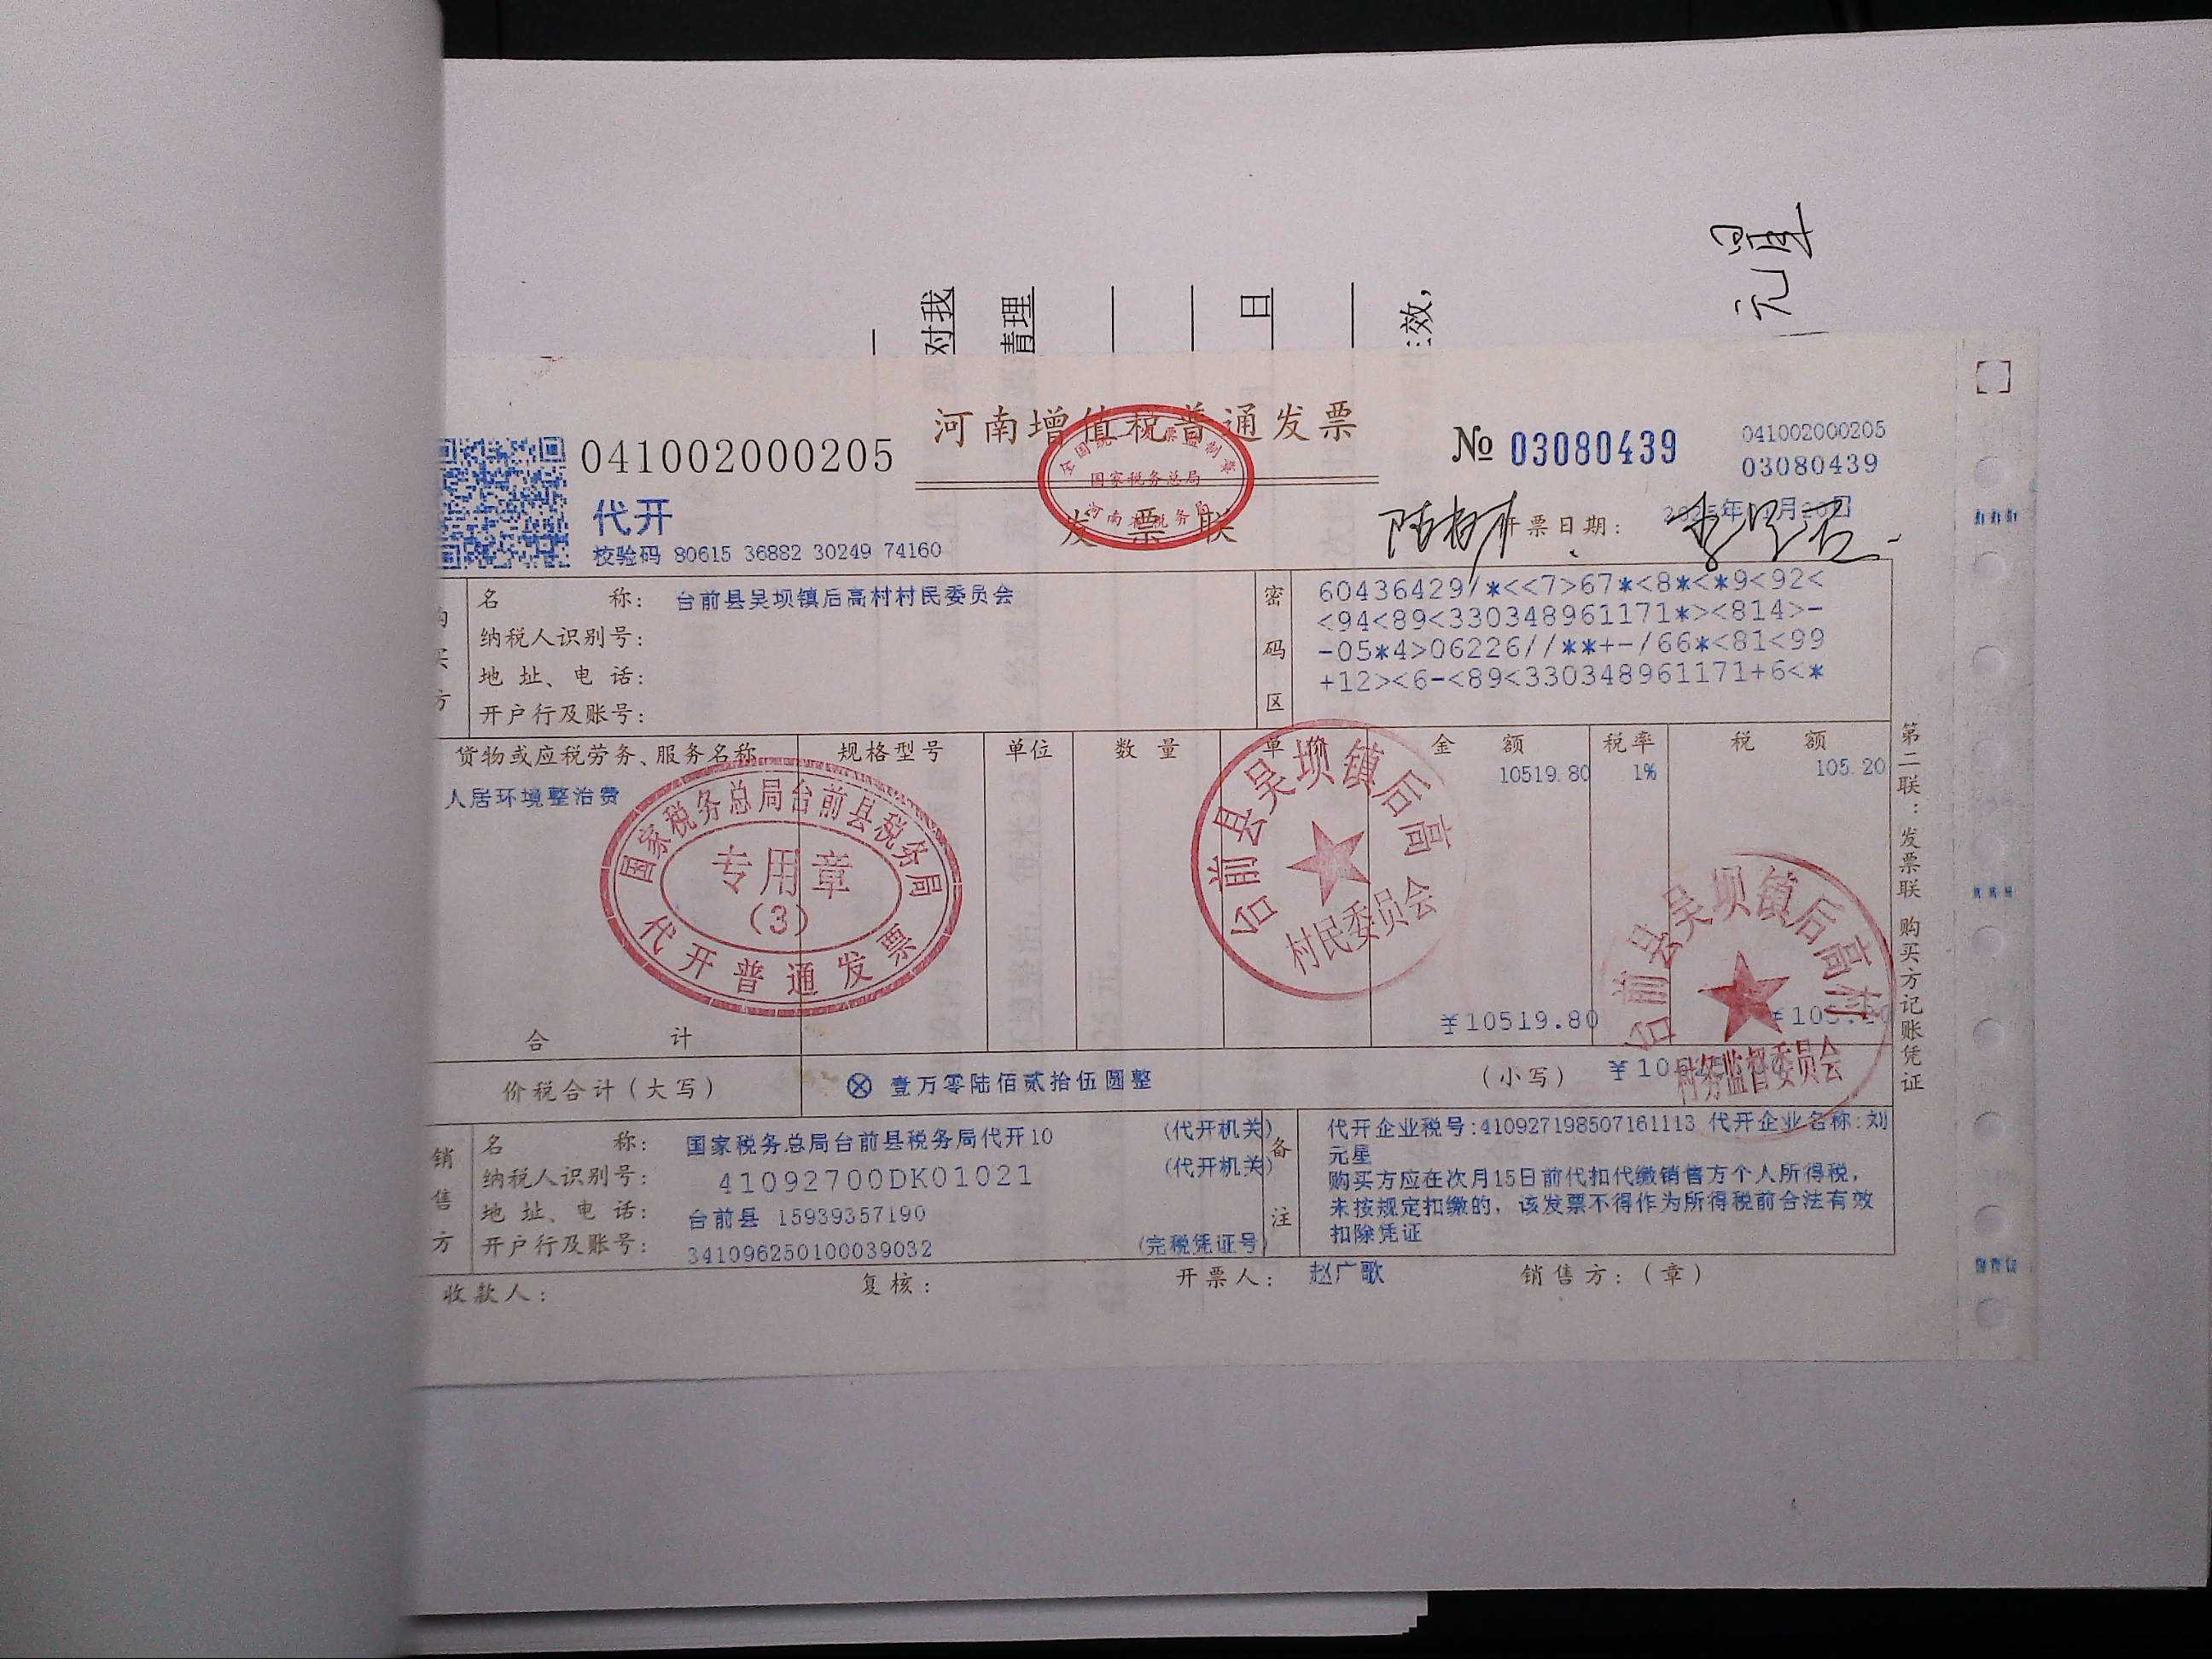 元星
对我
清理
日
效,
河南增值税普通发票
发票联
全国统一发票监制章
国家税务总局
河南省税务局
041002000205
代开
校验码 80615 36882 30249 74160
№ 03080439
041002000205
03080439
开票日期:
购买方
名称: 台前县吴坝镇后高村村民委员会
纳税人识别号:
地址、电话:
开户行及账号:
密码区
60436429/*<<7>67*<8*<*9<92<
<94<89<330348961171*><814>-
-05*4>06226//**+-/66*<81<99
+12><6-<89<330348961171+6<*
货物或应税劳务、服务名称 规格型号 单位 数量 单 金额 税率 税额
人居环境整治费 10519.80 1% 105.20
国家税务总局台前县税务局
专用章
(3)
代开普通发票
台前县吴坝镇后高
村民委员会
台前县吴坝镇后高村
村务监督委员会
合计 ¥10519.80
价税合计(大写) ⊗ 壹万零陆佰贰拾伍圆整 (小写)
销售方
名称: 国家税务总局台前县税务局代开10 (代开机关)
纳税人识别号: 41092700DK01021 (代开机关)
地址、电话: 台前县 15939357190
开户行及账号: 341096250100039032 (完税凭证号)
备注
代开企业税号:410927198507161113 代开企业名称:刘
元星
购买方应在次月15日前代扣代缴销售方个人所得税,
未按规定扣缴的, 该发票不得作为所得税前合法有效
扣除凭证
收款人: 复核: 开票人: 赵广歌 销售方:(章)
第二联:发票联 购买方记账凭证